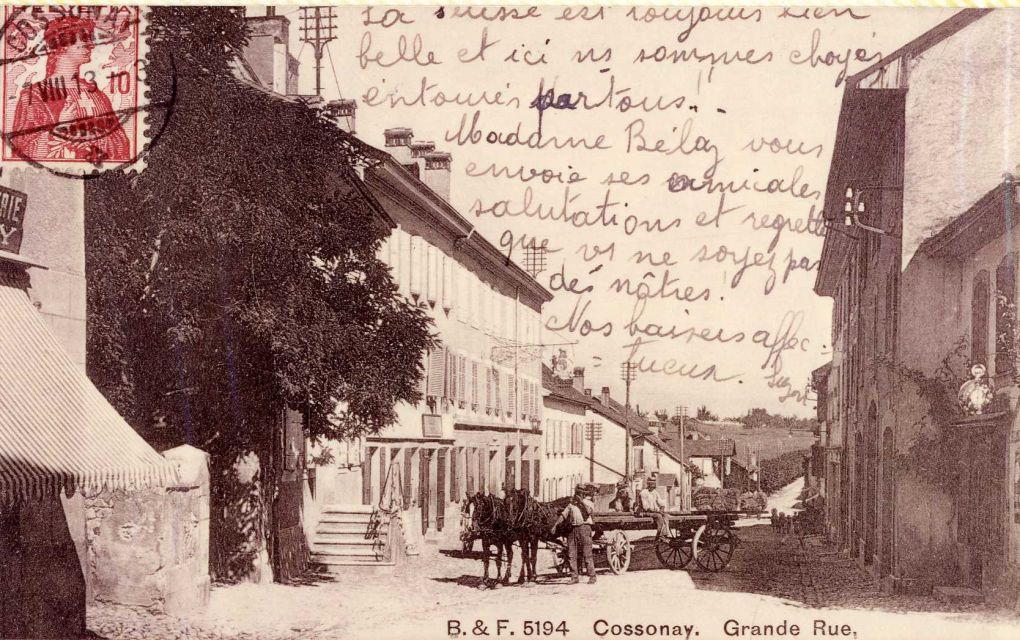 HELVETIA
COSSONAY
7 VIII 13 10
La Suisse est toujours bien
belle et ici ns sommes choyés
entourés partous!
Madame Bélaz vous
envoie ses amicales
salutations et regrette
que vs ne soyez pas
des nôtres!
Nos baisers affec
tueux.
RIE
Y
B. & F. 5194 Cossonay. Grande Rue.